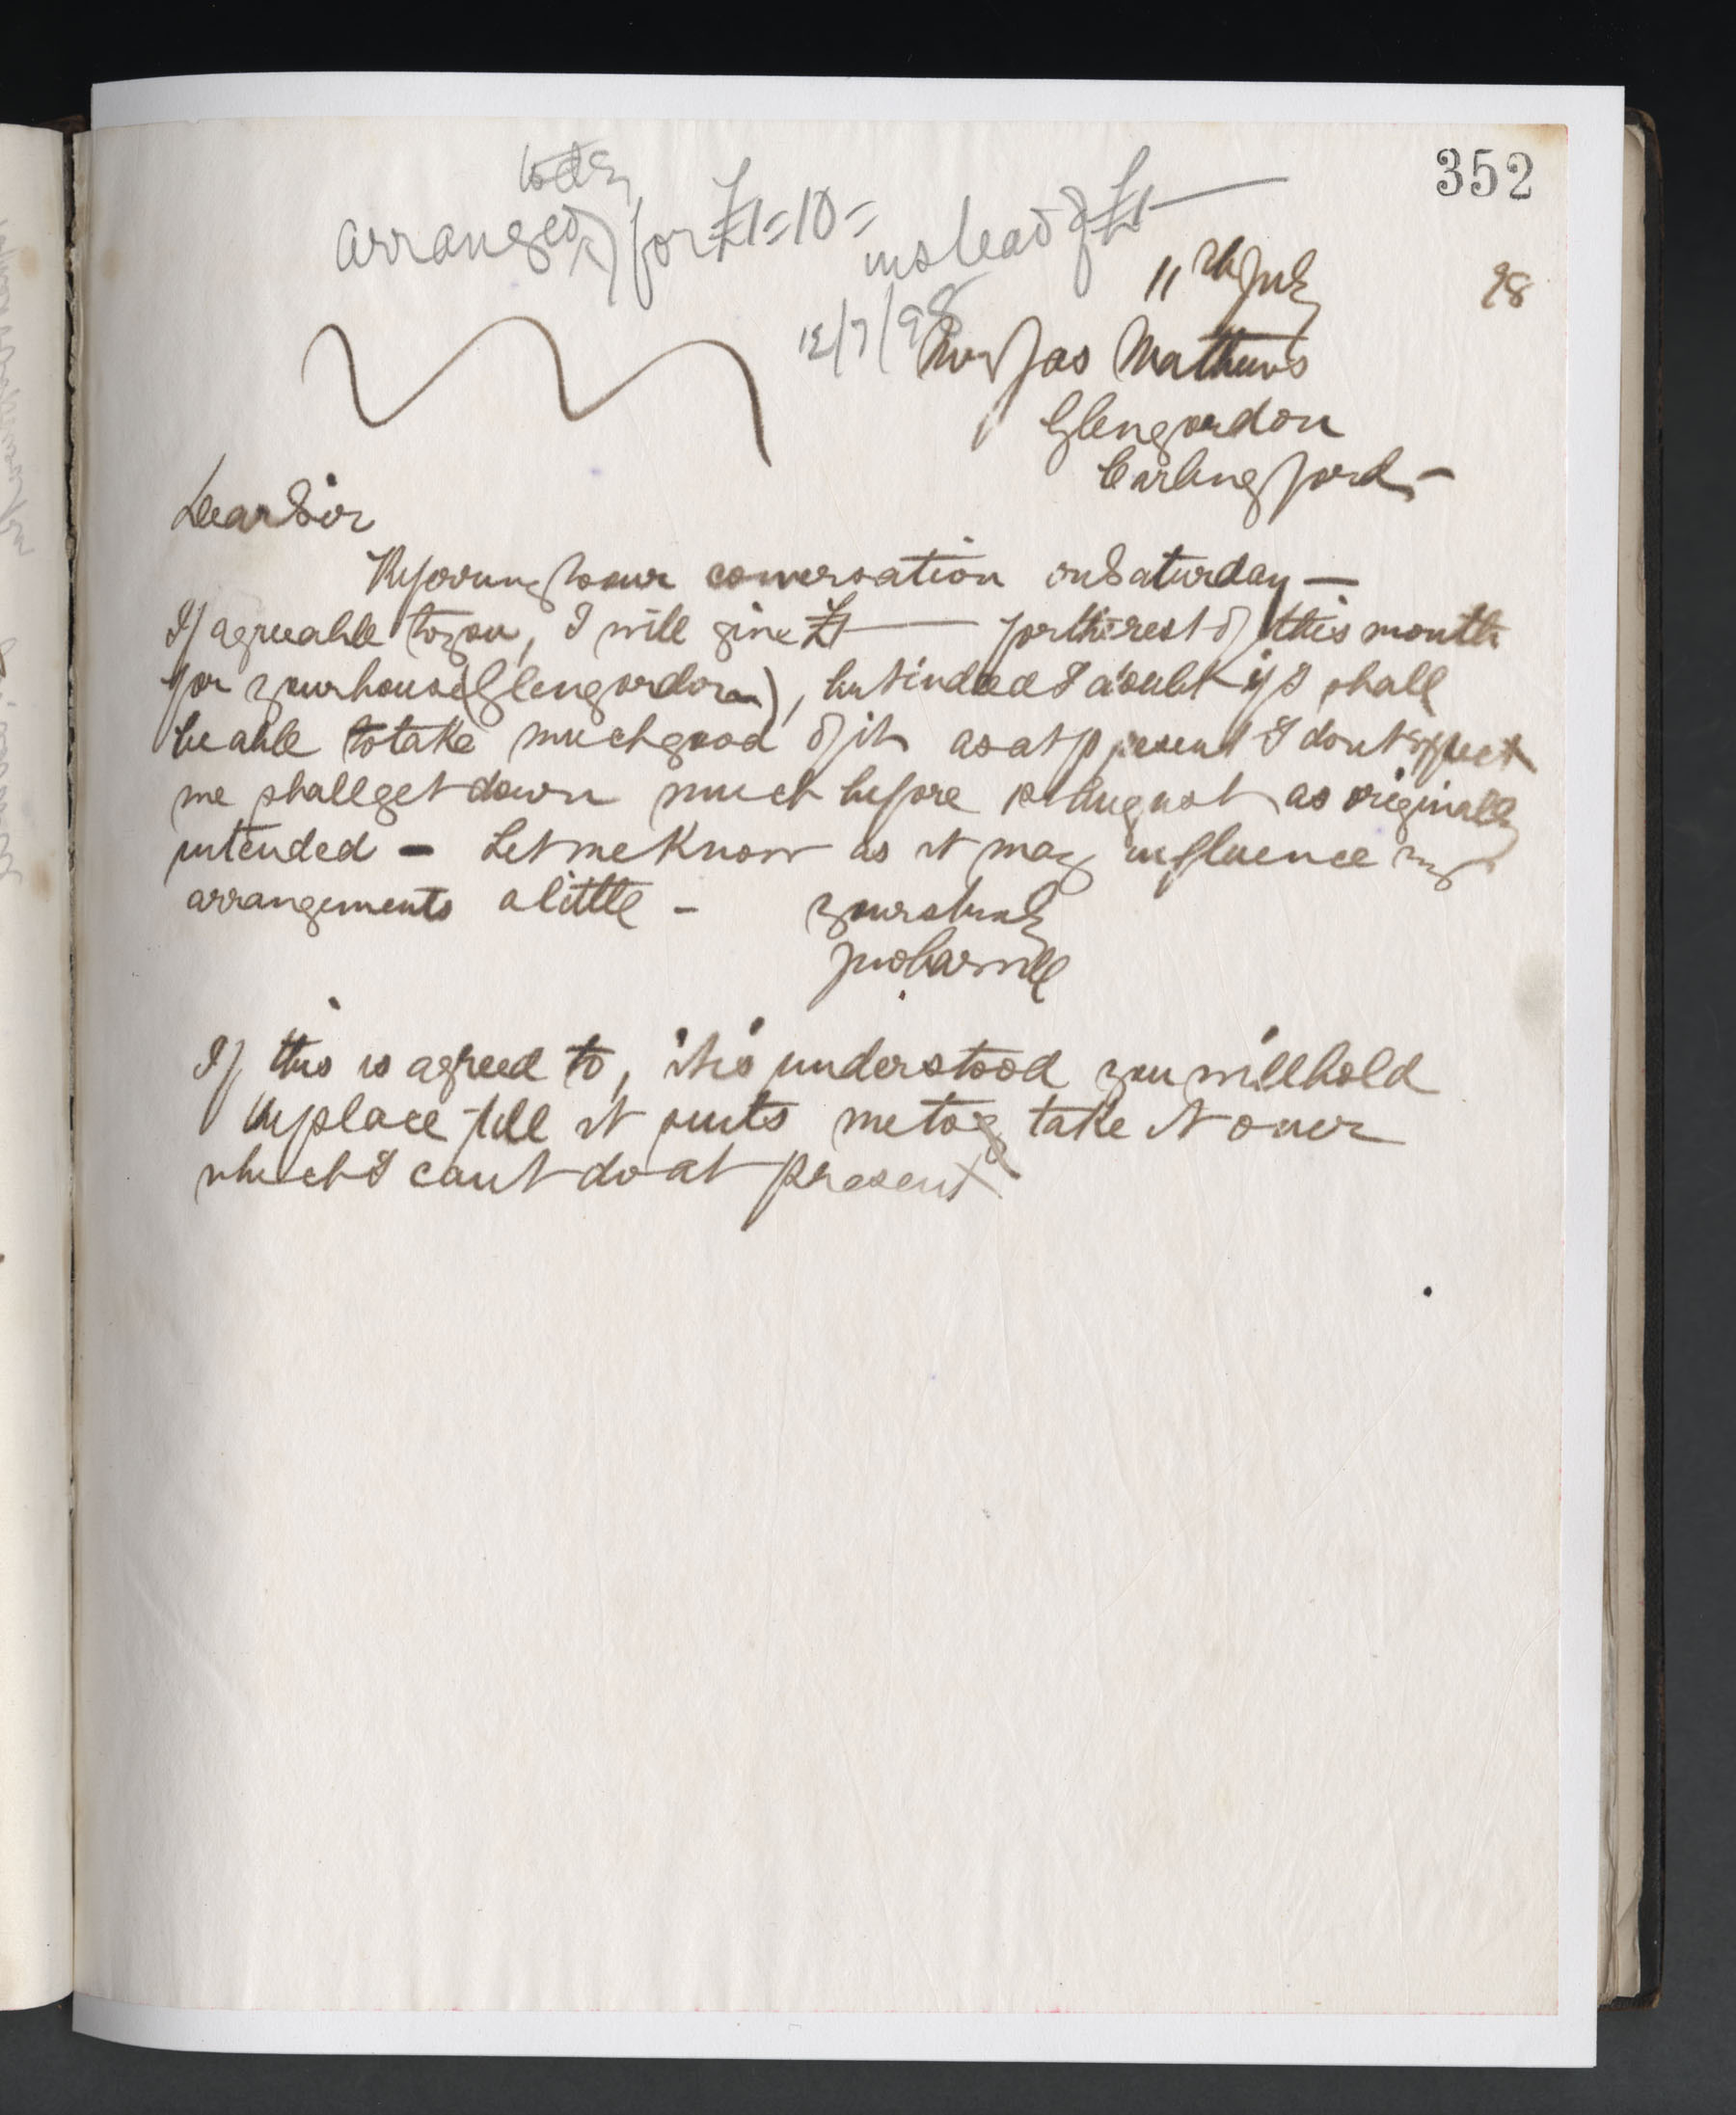 352
today
arranged for £1=10= instead of £1
11th July 98
12/7/98
Mr Jas Mathews
Glengordon
Carlingford —
Dear Sir
Referring to our conversation on Saturday —
If agreeable to you, I will give £1 — for the rest of this month
for your house (Glengordon), but indeed I doubt if I shall
be able to take much good of it as at present I dont expect
we shall get down much before 1st August as originally
intended — Let me know as it may influence my
arrangements a little —
yours truly
Jno Carvill
If this is agreed to, it is understood you will hold
the place till it suits me to take it over
which I cant do at present